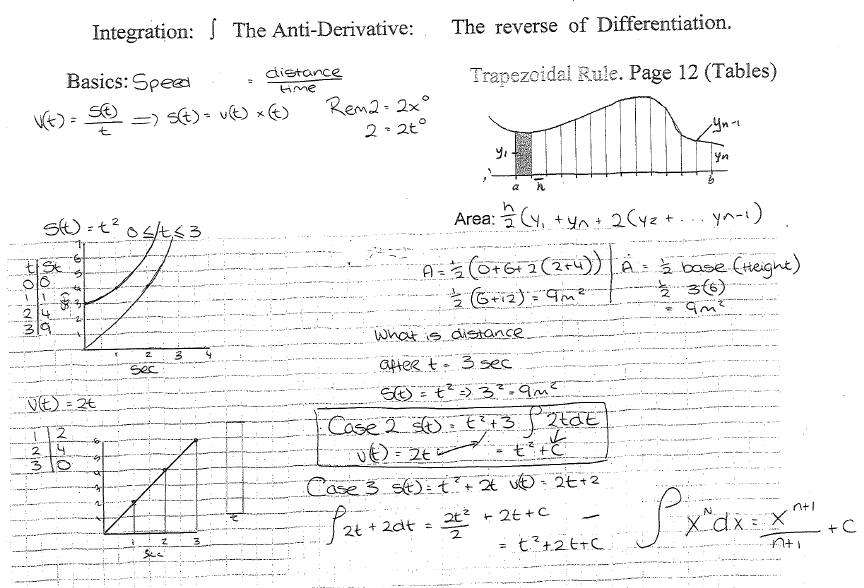 Integration: ∫ The Anti-Derivative: The reverse of Differentiation.
Basics: Speed = distance / time
V(t) = S(t) / t ⇒ S(t) = v(t) × (t)
Rem 2 = 2x⁰
2 = 2t⁰
Trapezoidal Rule. Page 12 (Tables)
y₁ yn-1 yn
a h b
Area: h/2 (y₁ + yn + 2(y2 + ... yn-1)
S(t) = t² 0 ≤ t ≤ 3
t | St
0 | 0
1 | 1
2 | 4
3 | 9
7
6
5
4
3
2
1
1 2 3 4
Sec
A = ½ (0+6+2(2+4))
½ (6+12) = 9m²
A = ½ base (Height)
½ 3(6)
= 9m²
What is distance
after t = 3 sec
S(t) = t² ⇒ 3² = 9m²
V(t) = 2t
1 | 2
2 | 4
3 | 0
1 2 3
Sec
t
Case 2 s(t) = t² + 3 ∫ 2tdt
v(t) = 2t = t² + C
Case 3 s(t) = t² + 2t v(t) = 2t + 2
∫ 2t + 2dt = 2t²/2 + 2t + C
= t² + 2t + C
∫ xᴺ dx = xⁿ⁺¹ / n+1 + C